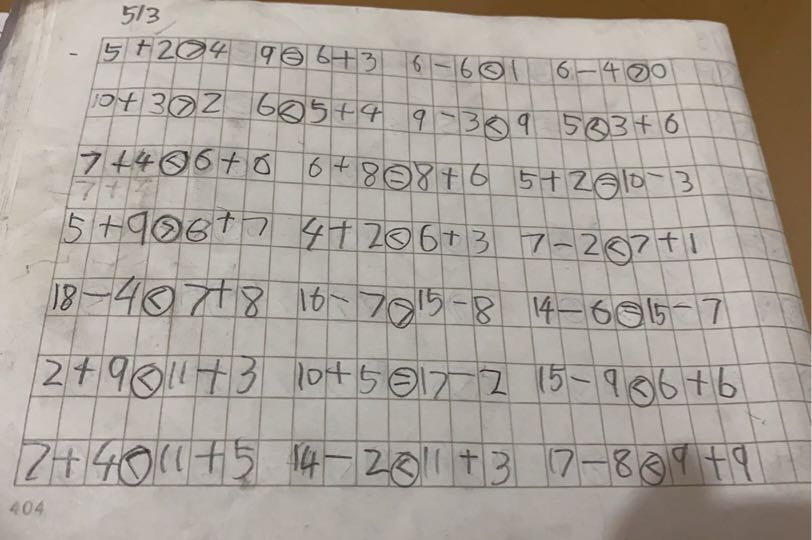 5/3
- 5+2>4 9=6+3 6-6<1 6-4>0
10+3>2 6<5+4 9-3<9 5<3+6
7+4<6+6 6+8=8+6 5+2=10-3
7+
5+9>6+7 4+2<6+3 7-2<7+1
18-4<7+8 16-7>15-8 14-6=15-7
2+9<11+3 10+5=17-2 15-9<6+6
7+4<11+5 14-2<11+3 17-8<9+9
404